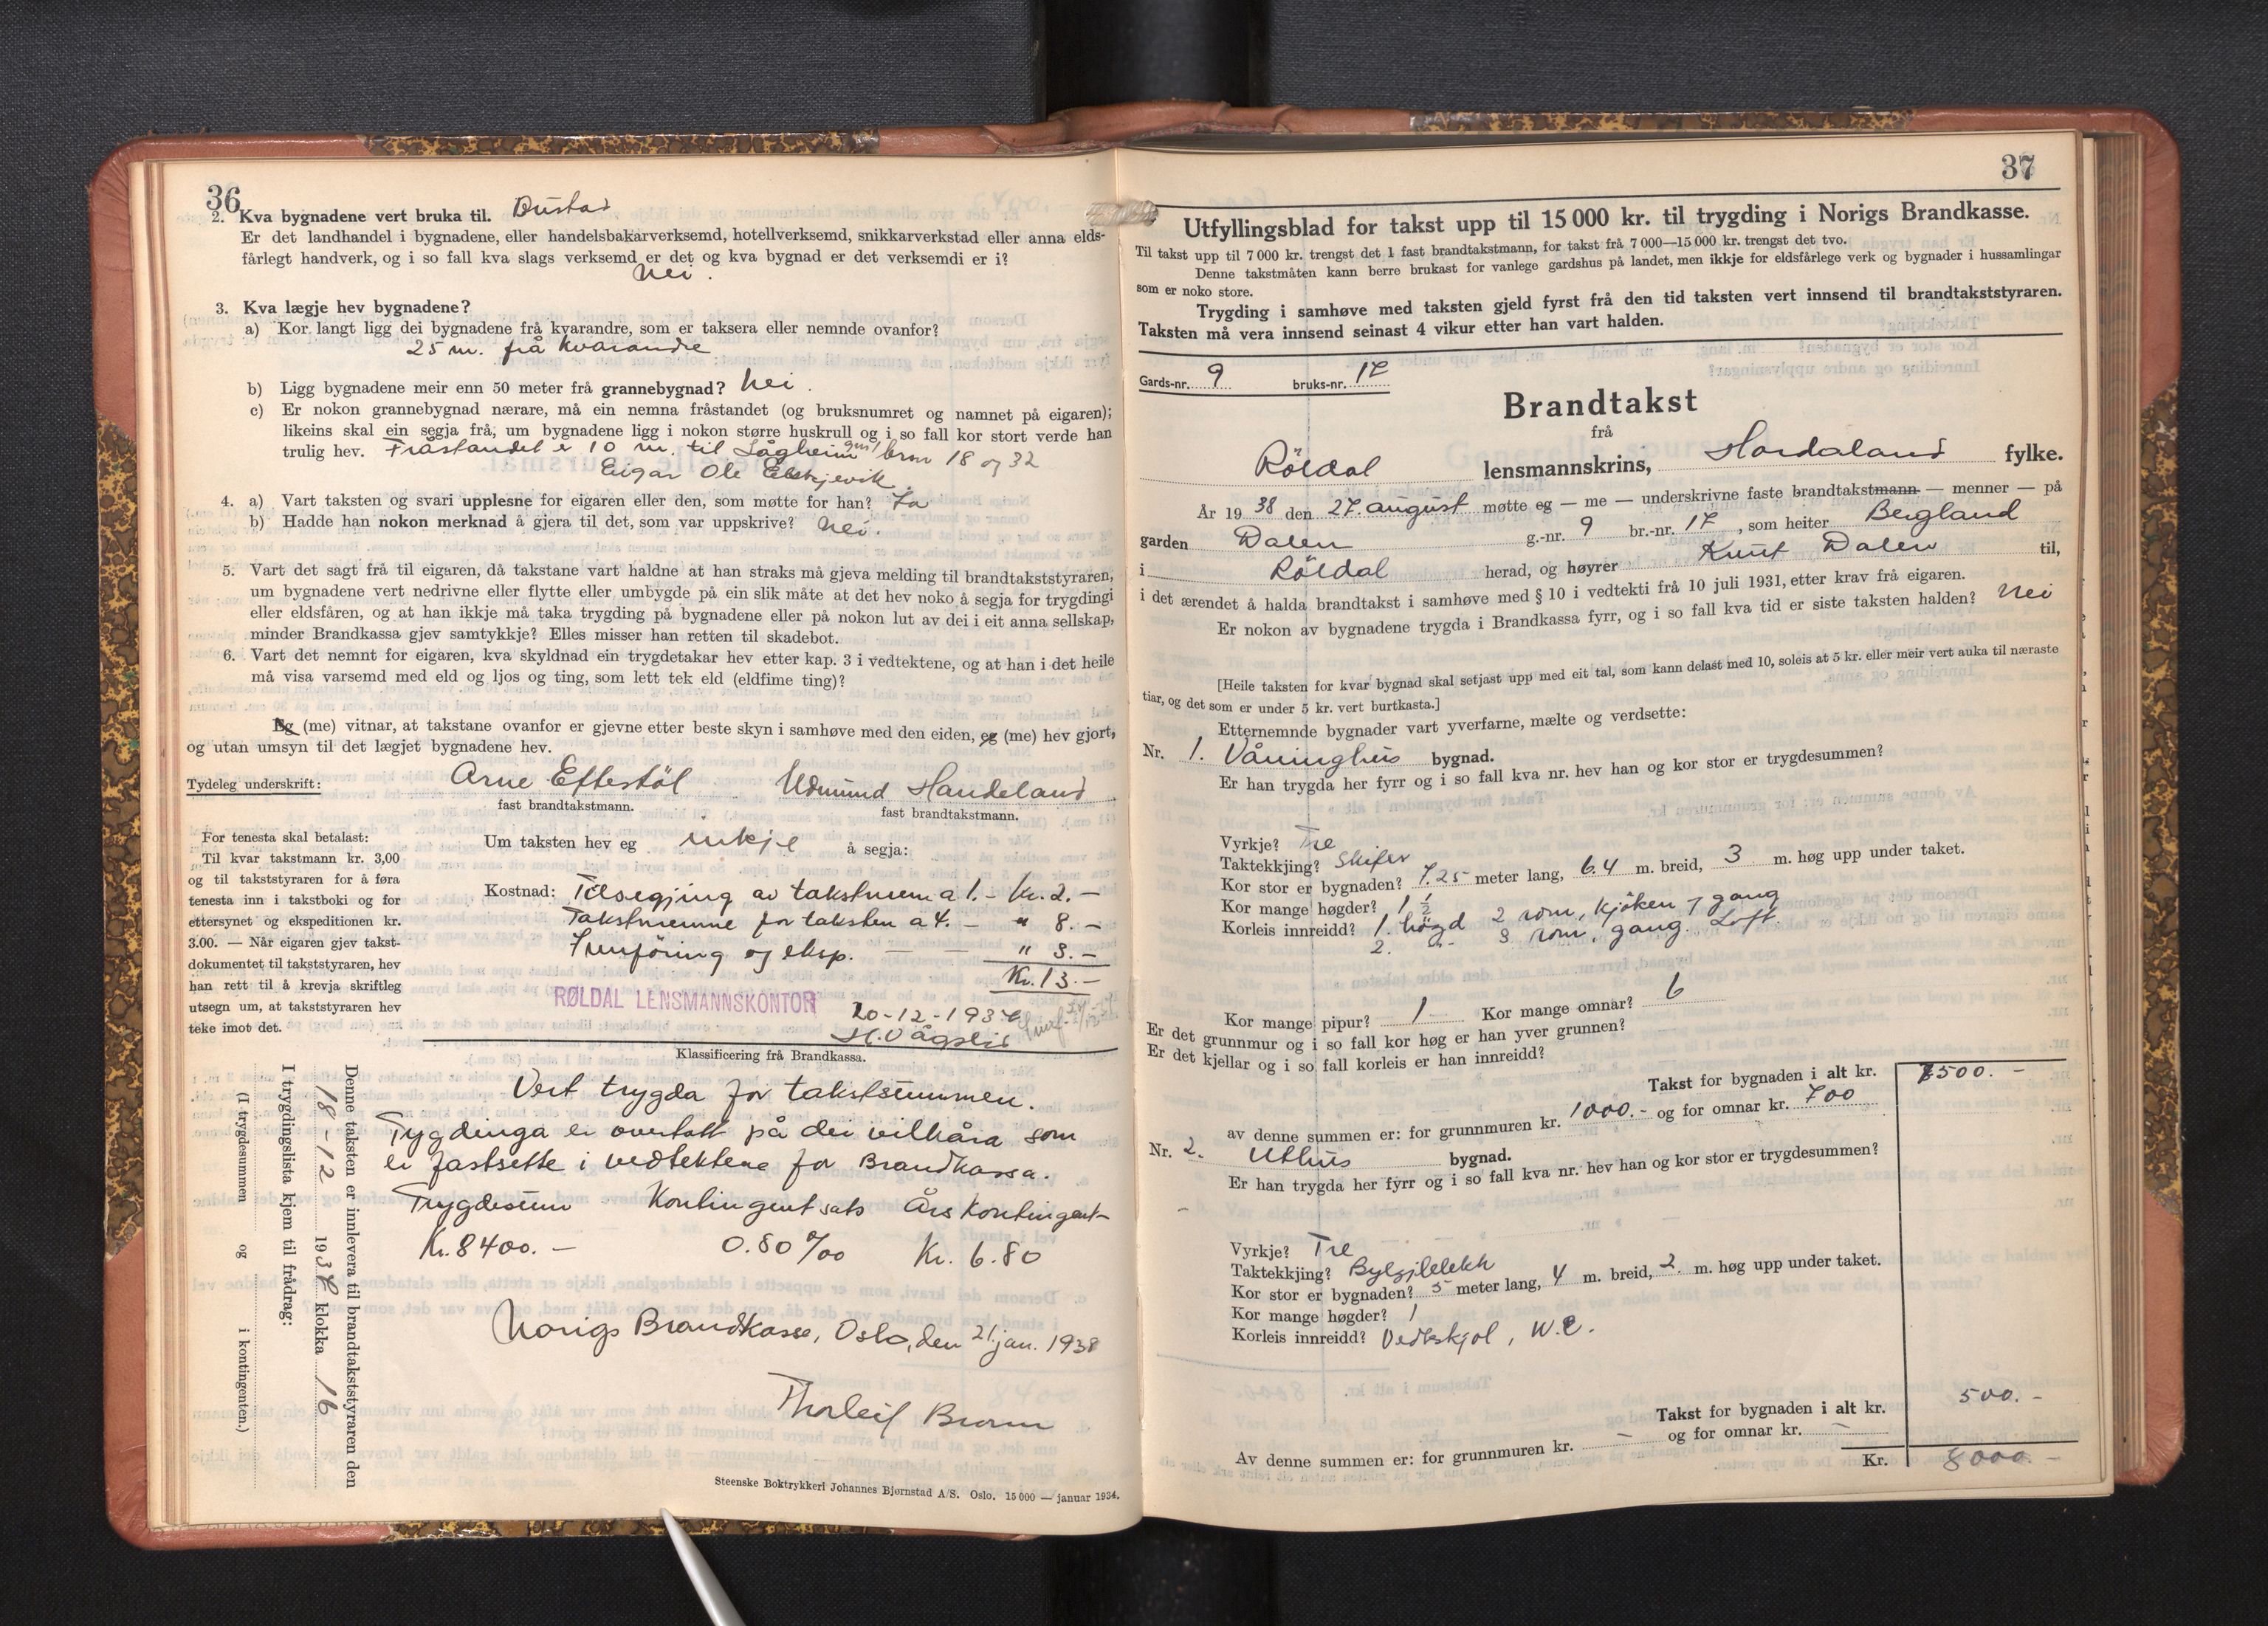 36
2. Kva bygnadene vert bruka til. Bustad
Er det landhandel i bygnadene, eller handelsbakarverksemd, hotellverksemd, snikkarverkstad eller anna elds-
fårlegt handverk, og i so fall kva slags verksemd er det og kva bygnad er det verksemdi er i?
Nei.
3. Kva lægje hev bygnadene?
a) Kor langt ligg dei bygnadene frå kvarandre, som er taksera eller nemnde ovanfor?
25 m. frå kvarandre
b) Ligg bygnadene meir enn 50 meter frå grannebygnad? Nei.
c) Er nokon grannebygnad nærare, må ein nemna fråstandet (og bruksnumret og namnet på eigaren);
likeins skal ein segja frå, um bygnadene ligg i nokon større huskrull og i so fall kor stort verde han
trulig hev. Fråstandet er 10 m. til Lågheim brnr 18 og 32
Eigar Ole
4. a) Vart taksten og svari upplesne for eigaren eller den, som møtte for han? Ja
b) Hadde han nokon merknad å gjera til det, som var uppskrive? Nei.
5. Vart det sagt frå til eigaren, då takstane vart haldne at han straks må gjeva melding til brandtakststyraren,
um bygnadene vert nedrivne eller flytte eller umbygde på ein slik måte at det hev noko å segja for trygdingi
eller eldsfåren, og at han ikkje må taka trygding på bygnadene eller på nokon lut av dei i eit anna sellskap,
minder Brandkassa gjev samtykkje? Elles misser han retten til skadebot.
6. Vart det nemnt for eigaren, kva skyldnad ein trygdetakar hev etter kap. 3 i vedtektene, og at han i det heile
må visa varsemd med eld og ljos og ting, som lett tek eld (eldfime ting)?
Eg (me) vitnar, at takstane ovanfor er gjevne etter beste skyn i samhøve med den eiden, eg (me) hev gjort,
og utan umsyn til det lægjet bygnadene hev.
Tydeleg underskrift: Arne Eftestöl Udmund Handeland
fast brandtakstmann. fast brandtakstmann.
For tenesta skal betalast:
Til kvar takstmann kr. 3,00
og til takststyraren for å føra
tenesta inn i takstboki og for
ettersynet og ekspeditionen kr.
3.00. — Når eigaren gjev takst-
dokumentet til takststyraren, hev
han rett til å krevja skriftleg
utsegn um, at takststyraren hev
teke imot det.
Um taksten hev eg inkje å segja:
Kostnad: Tilsegjing av takstmenn a 1.- Kr. 2.-
Takstmenne for taksten a 4. - " 8.-
Innföring og eksp. " 3.-
Kr. 13.-
RØLDAL LENSMANNSKONTOR
20-12-1937
H. Vågslid
Klassificering frå Brandkassa.
Vert trygda for takstsummen.
Trygdinga er overtatt på dei vilkåra som
er fastsette i vedtektene for Brandkassa.
Trygdesum Kontingentsats Års kontingent
Kr. 8400.- 0.80 ‰ Kr. 6.80
Norigs Brandkasse, Oslo, den 21. jan. 1938
Thorleif
Denne taksten er innlevera til brandtakststyraren den
18-12 1937 klokka 16
I trygdingslista kjem til frådrag:
(I trygdesummen og i kontingenten.)
Steenske Boktrykkeri Johannes Bjørnstad A/S. Oslo. 15 000 — januar 1934.
37
Utfyllingsblad for takst upp til 15 000 kr. til trygding i Norigs Brandkasse.
Til takst upp til 7 000 kr. trengst det 1 fast brandtakstmann, for takst frå 7 000—15 000 kr. trengst det tvo.
Denne takstmåten kann berre brukast for vanlege gardshus på landet, men ikkje for eldsfårlege verk og bygnader i hussamlingar
som er noko store.
Trygding i samhøve med taksten gjeld fyrst frå den tid taksten vert innsend til brandtakststyraren.
Taksten må vera innsend seinast 4 vikur etter han vart halden.
Gards-nr. 9 bruks-nr. 17
Brandtakst
frå
Röldal lensmannskrins, Hordaland fylke.
År 1938 den 27. august møtte eg — me — underskrivne faste brandtakstmann — menner — på
garden Dalen g.-nr. 9 br.-nr. 17, som heiter Bergland
i Röldal herad, og høyrer Knut Dalen til,
i det ærendet å halda brandtakst i samhøve med § 10 i vedtekti frå 10 juli 1931, etter krav frå eigaren.
Er nokon av bygnadene trygda i Brandkassa fyrr, og i so fall kva tid er siste taksten halden? Nei
[Heile taksten for kvar bygnad skal setjast upp med eit tal, som kann delast med 10, soleis at 5 kr. eller meir vert auka til næraste
tiar, og det som er under 5 kr. vert burtkasta.]
Etternemnde bygnader vart yverfarne, mælte og verdsette:
Nr. 1. Våninghus bygnad.
Er han trygda her fyrr og i so fall kva nr. hev han og kor stor er trygdesummen?
Vyrkje? Tre
Taktekkjing? Skifer
Kor stor er bygnaden? 7.25 meter lang, 6.4 m. breid, 3 m. høg upp under taket.
Kor mange høgder? 1 ½
Korleis innreidd? 1. högd 2 rom, kjöken, gang
2. " 3 rom, gang. Loft.
Kor mange pipur? 1 Kor mange omnar? 6
Er det grunnmur og i so fall kor høg er han yver grunnen?
Er det kjellar og i so fall korleis er han innreidd?
Takst for bygnaden i alt kr. 7500.-
av denne summen er: for grunnmuren kr. 1000.- og for omnar kr. 700
Nr. 2. Uthus bygnad.
Er han trygda her fyrr og i so fall kva nr. hev han og kor stor er trygdesummen?
-
Vyrkje? Tre
Taktekkjing? Bylgjeblekk
Kor stor er bygnaden? 5 meter lang, 4 m. breid, 2. m. høg upp under taket.
Kor mange høgder? 1
Korleis innreidd? Vedskjol, W.C.
Takst for bygnaden i alt kr. 500.-
Av denne summen er: for grunnmuren kr. - og for omnar kr. -
Kr. 8000.-